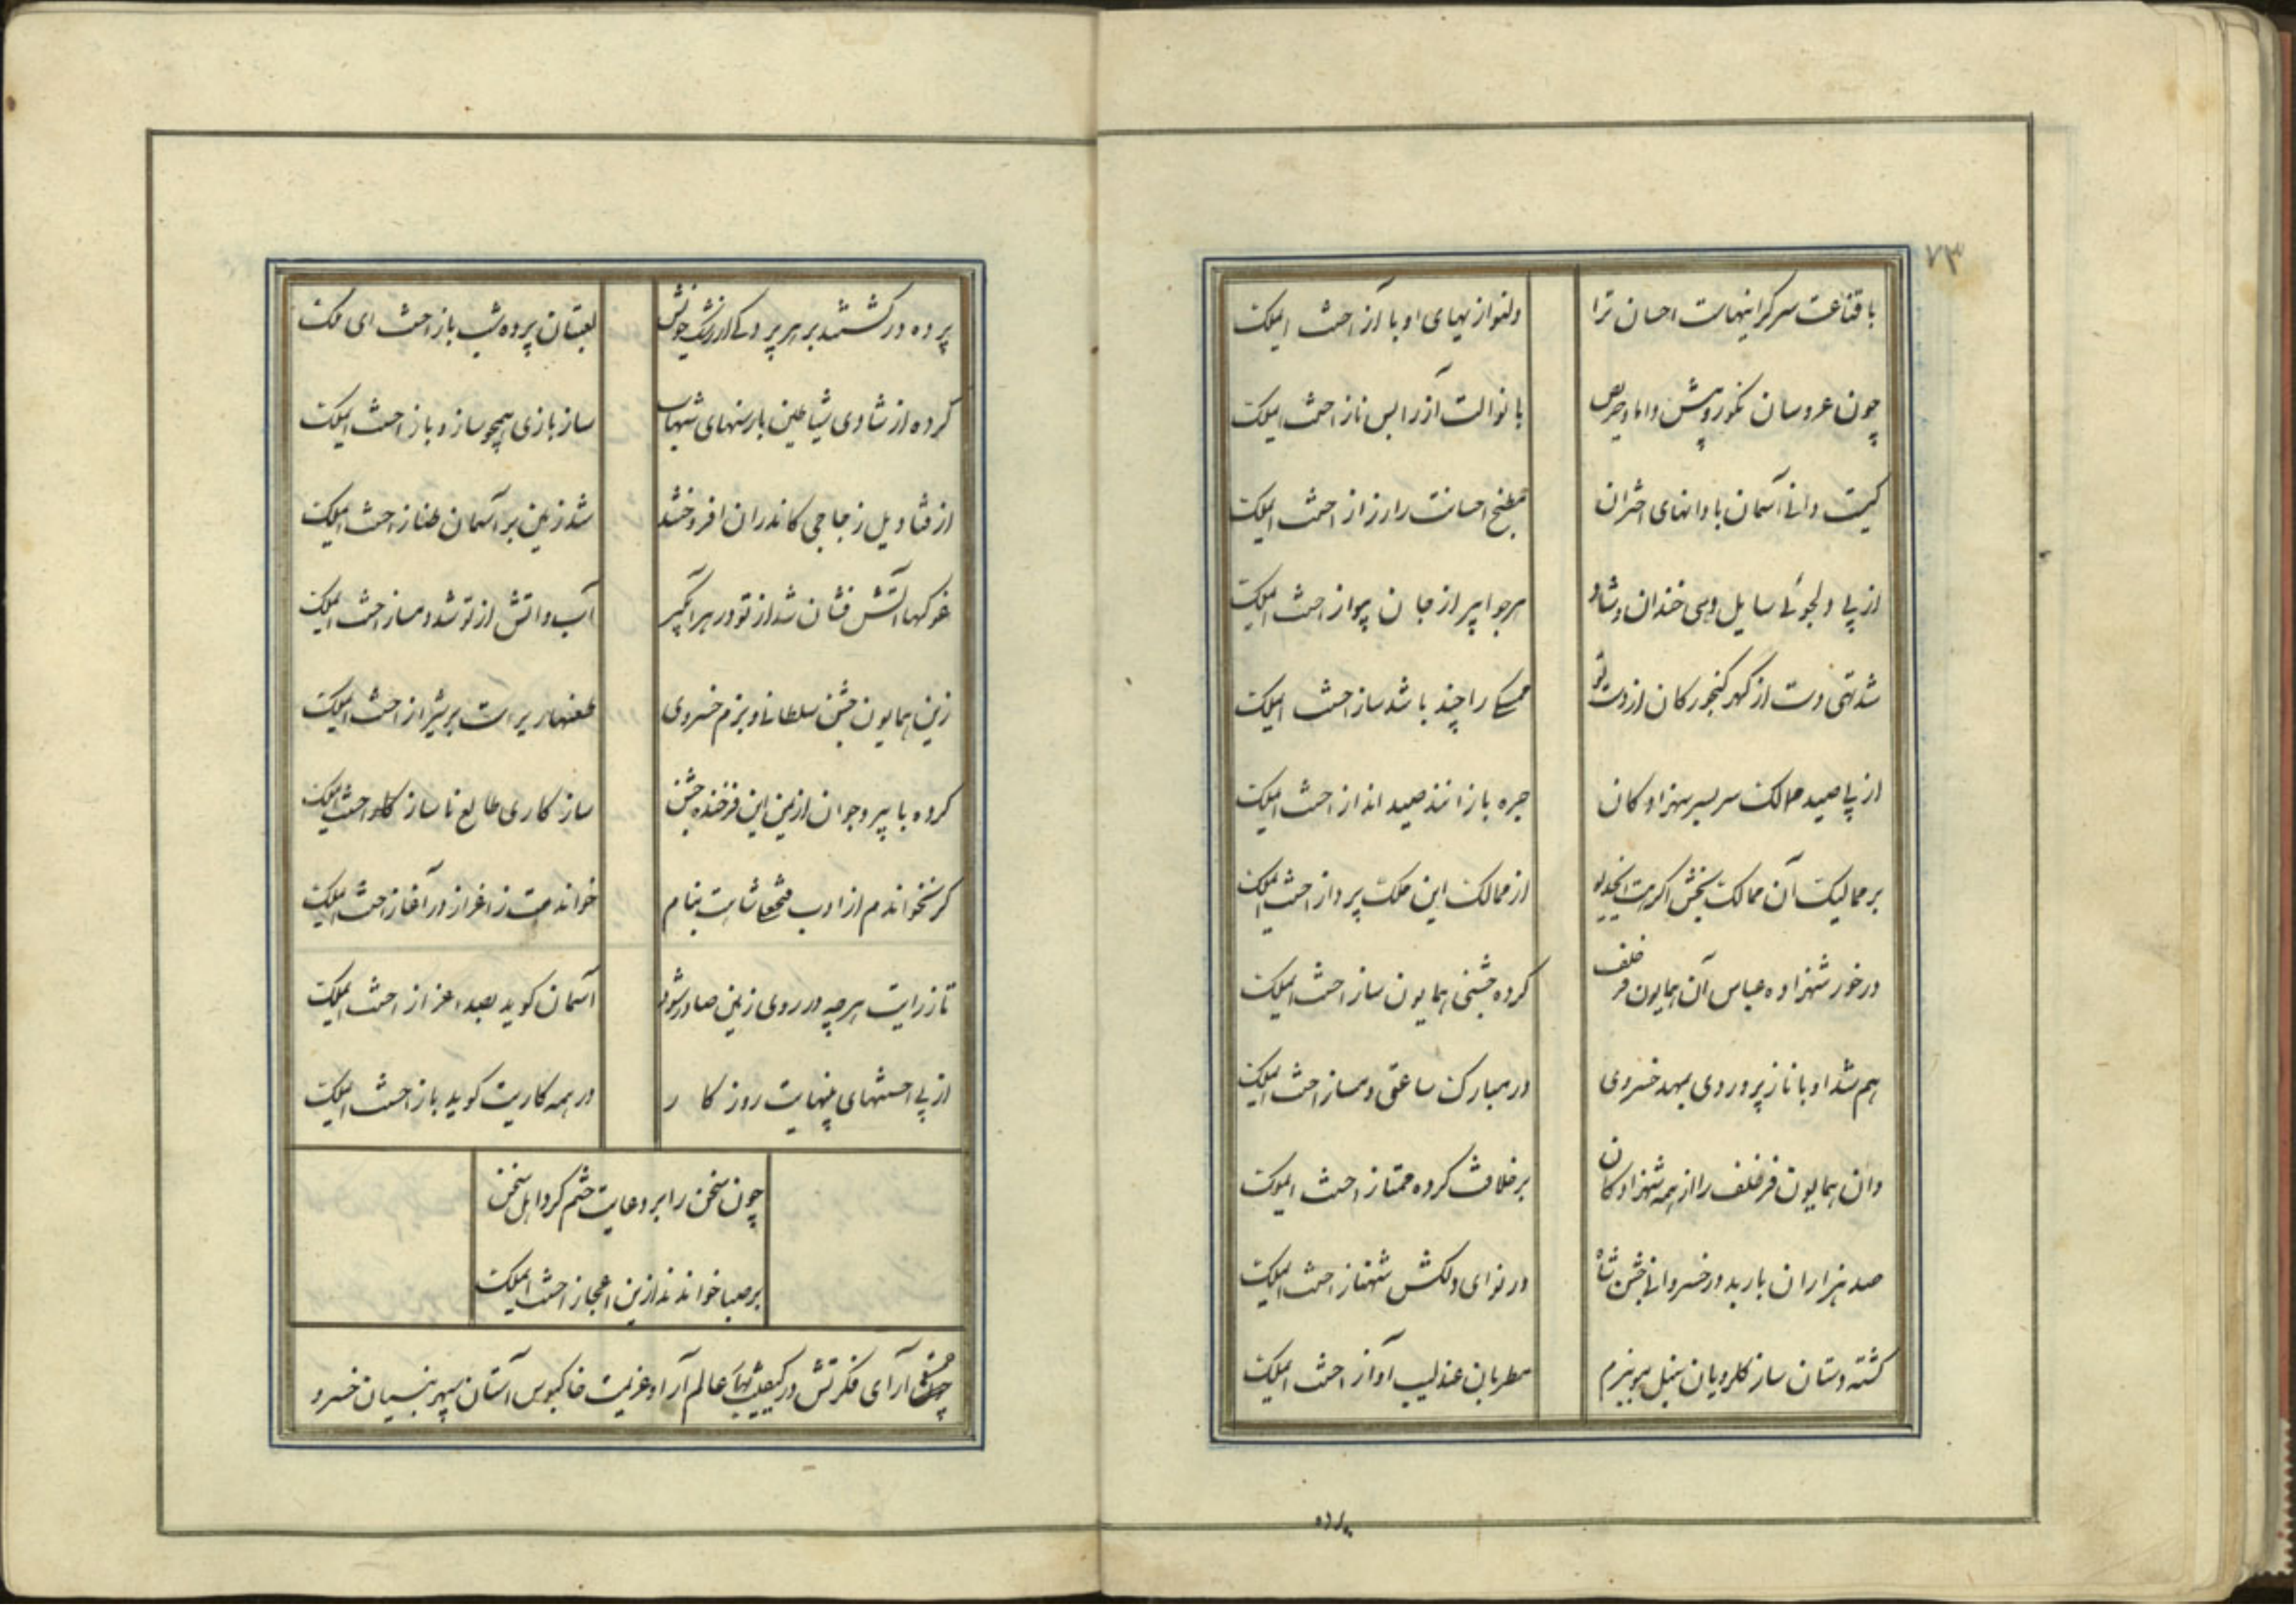 ۷۳
با قناعت سرکرانیهاست احسان ترا
دلنوازیهای او با آز احسنت ایملک
چون عروسان نکوروپیش داماد حریص
با نوالت آز را بس ناز احسنت ایملک
کیست دانی آسمان با دانهای اختران
مطبخ احسانت را رزاز احسنت ایملک
از پی دلجوئی سایل دهی خندان و شاد
هر جوابی را ز جان احسنت ایملک
شد تهی دست از کهر کنجور کان از دست تو
را چند باشد ساز احسنت ایملک
از پی صید ممالک سربسر شهزادکان
جره بازانند صید انداز احسنت ایملک
بر ممالیک آن ممالک بخش اکر
از ممالک این ملک پرداز احسنت ایملک
در خور شهزاده عباس آن همایون فر خلف
کرده جشنی همایون ساز احسنت ایملک
هم شد او با ناز پروردی بمهد خسروی
در مبارک ساعتی دمساز احسنت ایملک
وان همایون فر خلف را از همه شهزادکان
بر خلافت کرده ممتاز احسنت ایملک
صد هزاران باربد در خسروانی جشن شاه
در نوای دلکش شهناز احسنت ایملک
کشته دستان ساز کلرویان سنبل مو ببزم
مطربان عندلیب آواز احسنت ایملک
پرده
پرده در کشتند بر هر پرده
لعبتان پرده شب باز احسنت ای ملک
کرده از شادی شیاطین بارسنهای شهاب
ساز بازی همچو سازو باز احسنت ایملک
از قنادیل زجاجی کاندران افروختند
شد زمین بر آسمان طناز احسنت ایملک
غوکها آتش فشان شد از تو در هر آبگیر
آب و اتش از تو شد دمساز احسنت ایملک
زین همایون جشن سلطانی و بزم خسروی
طعنها بر شیراز احسنت ایملک
کرده با پیر و جوان از یمن این فرخنده جشن
ساز کاری طالع ناساز کار احسنت ایملک
کر نخواندم از ادب ثابت بنام
خواندمت ز اغراز در آغاز احسنت ایملک
تا ز رایت هر چه در روی زمین صادر شود
آسمان کوید بصد اعزاز احسنت ایملک
از پی احسنتهای بینهایت روز کار
در همه کاریت کوید باز احسنت ایملک
چون سخن را بر دعایت ختم کرد اهل سخن
بر صبا خواندند ازین اعجاز احسنت ایملک
آرای فکرتش در عالم آرا و عزیمت خاکبوس آستان سپهر بنیان خسرو